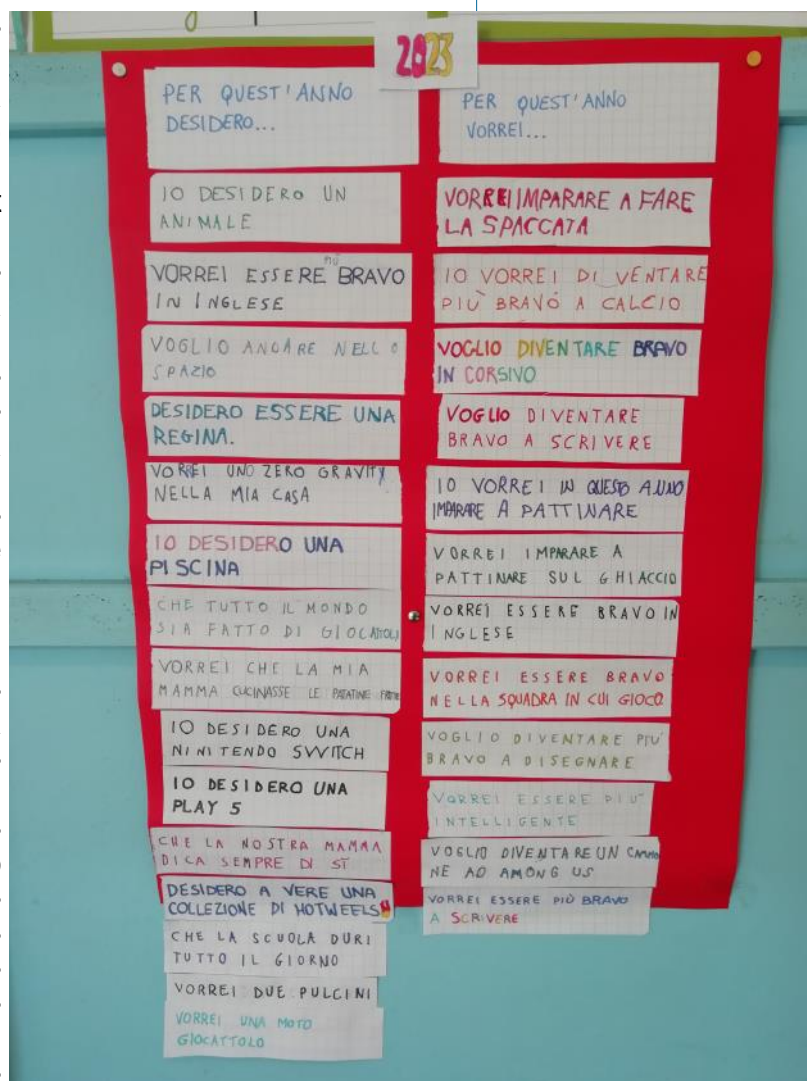 2023
PER QUEST'ANNO
DESIDERO...
IO DESIDERO UN
ANIMALE
VORREI ESSERE PIÙ BRAVO
IN INGLESE
VOGLIO ANDARE NELLO
SPAZIO
DESIDERO ESSERE UNA
REGINA.
VORREI UNO ZERO GRAVITY
NELLA MIA CASA
IO DESIDERO UNA
PISCINA
CHE TUTTO IL MONDO
SIA FATTO DI GIOCATTOLI
VORREI CHE LA MIA
MAMMA CUCINASSE LE PATATINE FRITTE
IO DESIDERO UNA
NINITENDO SWITCH
IO DESIDERO UNA
PLAY 5
CHE LA NOSTRA MAMMA
DICA SEMPRE DI SÌ
DESIDERO A VERE UNA
COLLEZIONE DI HOTWEELS
CHE LA SCUOLA DURI
TUTTO IL GIORNO
VORREI DUE PULCINI
VORREI UNA MOTO
GIOCATTOLO
PER QUEST'ANNO
VORREI...
VORREI IMPARARE A FARE
LA SPACCATA
IO VORREI DIVENTARE
PIÙ BRAVO A CALCIO
VOGLIO DIVENTARE BRAVO
IN CORSIVO
VOGLIO DIVENTARE
BRAVO A SCRIVERE
IO VORREI IN QUESTO ANNO
IMPARARE A PATTINARE
VORREI IMPARARE A
PATTINARE SUL GHIACCIO
VORREI ESSERE BRAVO IN
INGLESE
VORREI ESSERE BRAVO
NELLA SQUADRA IN CUI GIOCO
VOGLIO DIVENTARE PIU'
BRAVO A DISEGNARE
VORREI ESSERE PIU'
INTELLIGENTE
VOGLIO DIVENTARE UN CAMPIO
NE AD AMONG US
VORREI ESSERE PIÙ BRAVO
A SCRIVERE